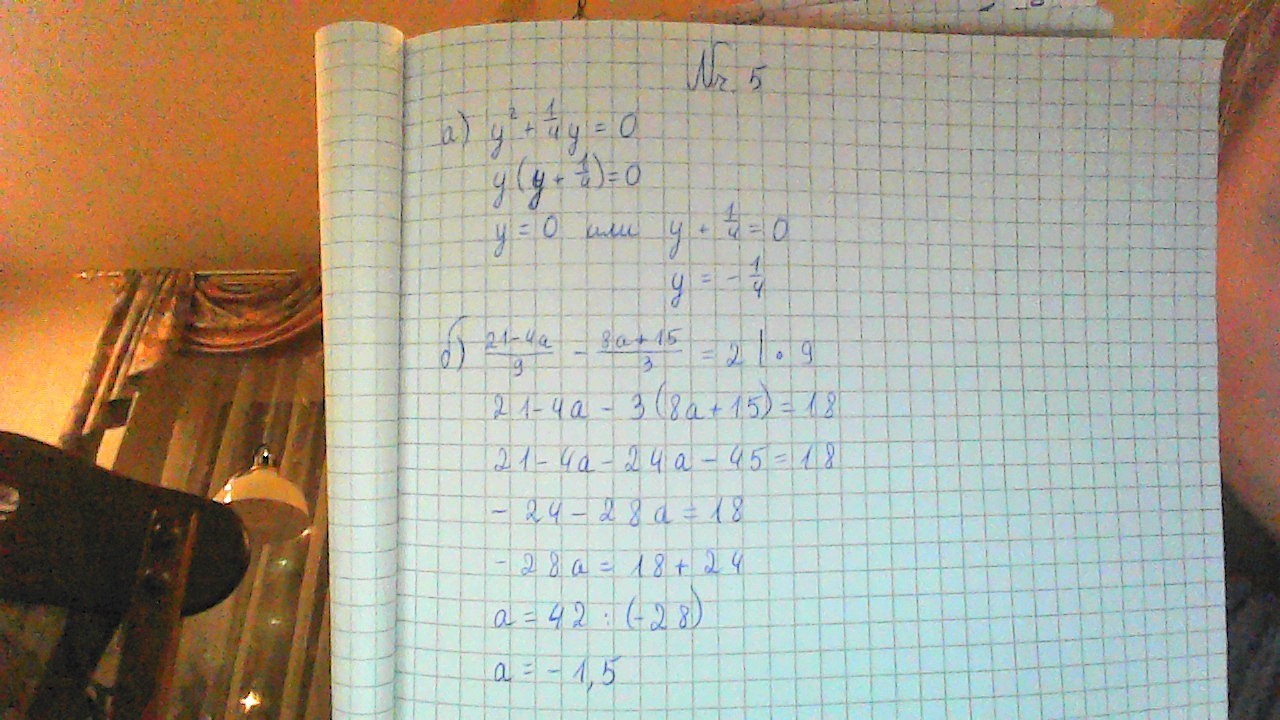 Nr. 5
а) y² + 1/4 y = 0
y(y + 1/4) = 0
y = 0 или y + 1/4 = 0
y = - 1/4
б) 21-4a/9 - 8a+15/3 = 2 | • 9
21-4a - 3(8a+15) = 18
21-4a-24a-45 = 18
- 24 - 28a = 18
- 28a = 18 + 24
a = 42 : (-28)
a = - 1,5